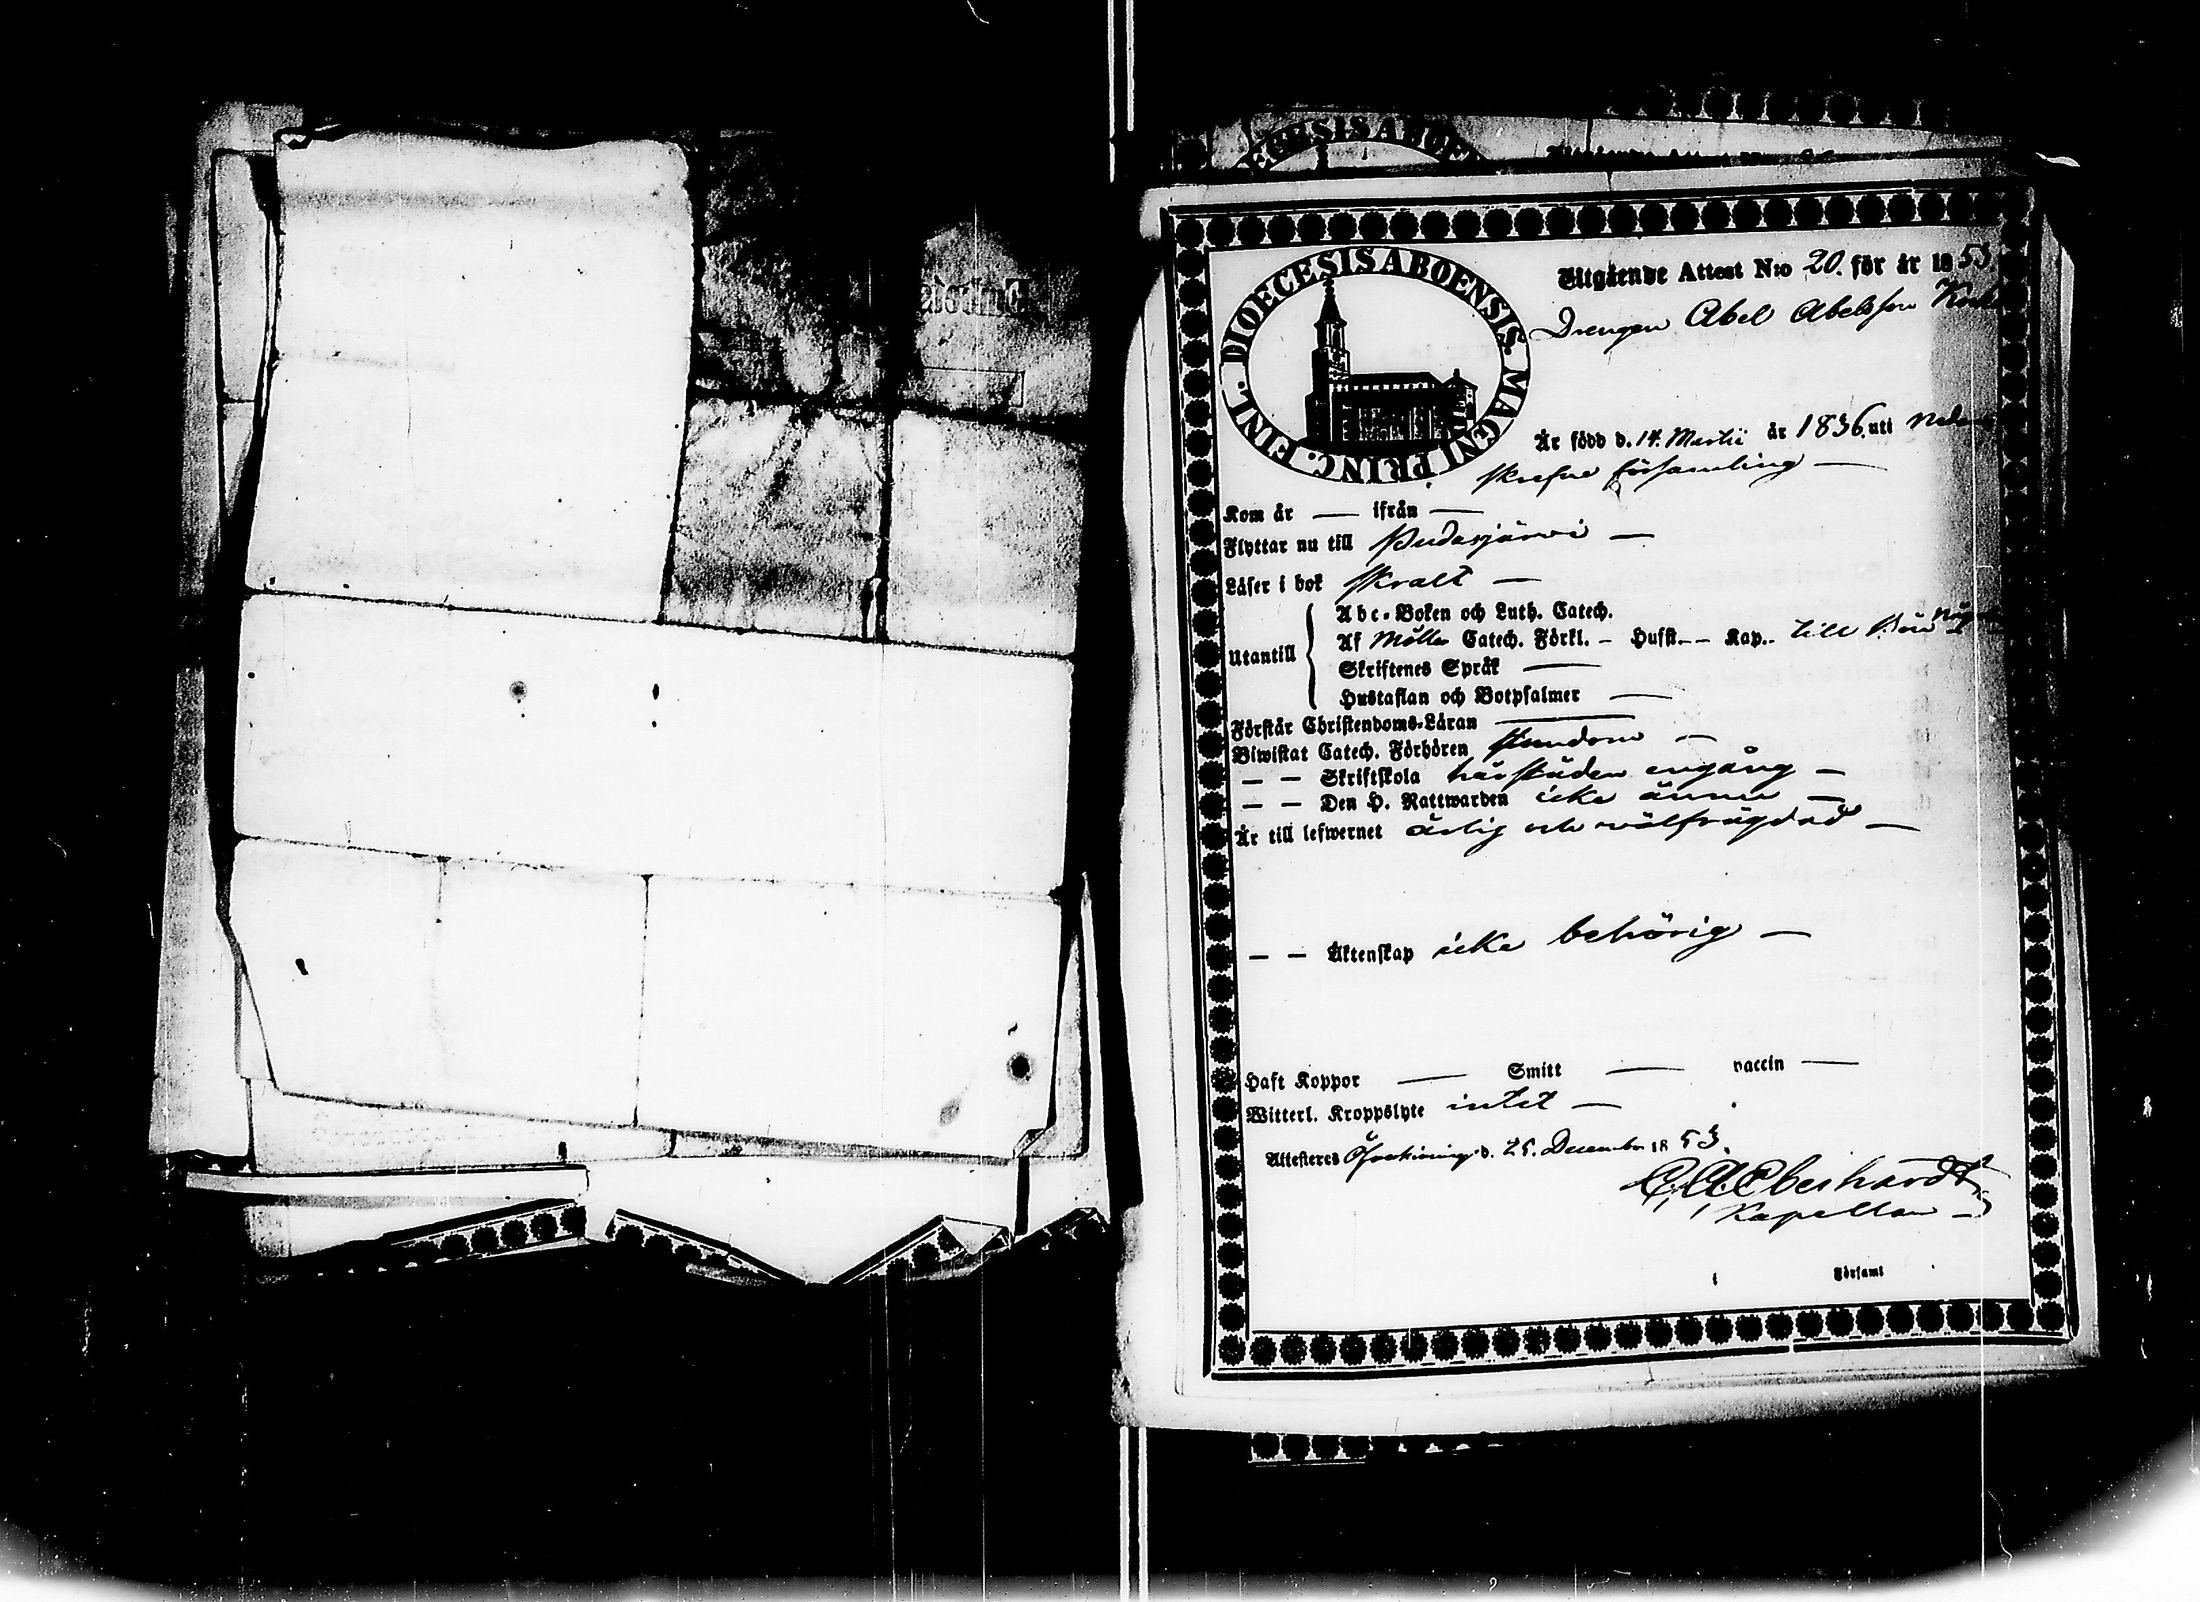 DIOECESIS ABOENSIS. MAGNI PRINC. FINL.
Utgående Attest N:o 20. för år 1853
Drengen Abel Abelsson
Är född d. 14. Martii år 1836. uti
skrefne församling —
Kom år — ifrån —
Flyttar nu till Pudasjärvi —
Läser i bok svalt —
Utantill
Abc-Boken och Luth. Catech.
Af Catech. Förkl. — Husst. — Kap. till
Skriftenes Språk —
Hustaflan och Botpsalmer —
Förstår Christendoms-Läran —
Biwistat Catech. Förhören stundom —
— — Skriftskola härstädes engång —
— — Den H. Nattwarden icke ännu —
Är till lefwernet ärlig och välfrägdad —
— — Äktenskap icke behörig —
Haft Koppor — Smitt — vaccin —
Witterl. Kroppslyte intet —
Attesteres Öfverkiminge d. 25. December 1853.
C. A. Eberhardt
Kapellan
Församl